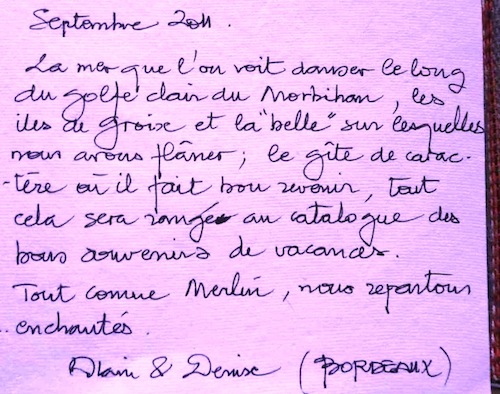 Septembre 2011.
La mer que l'on voit danser le long
du golfe clair du Morbihan, les
îles de Groix et la "belle" sur lesquelles
nous avons flâner; le gîte de carac-
-tère où il fait bon revenir, tout
cela sera rangé au catalogue des
bons souvenirs de vacances.
Tout comme Merlin, nous repartons
.. enchantés.
Alain & Denise (BORDEAUX)